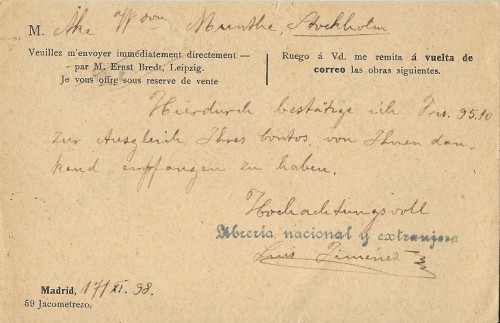 M. Åke W:son Munthe, Stockholm
Veuillez m'envoyer immédiatement directement —
— par M. Ernst Bredt, Leipzig.
Je vous offre sous reserve de vente
Ruego á Vd. me remita á vuelta de
correo las obras siguientes.
Hierdurch bestätige ich Frs. 95.10
zur Ausgleich Ihres Contos, von Ihnen dan-
kend empfangen zu haben.
Hochachtungsvoll
Librería nacional y extranjera
Luis Jiménez
Madrid, 17/XI. 98.
59 Jacometrezo.